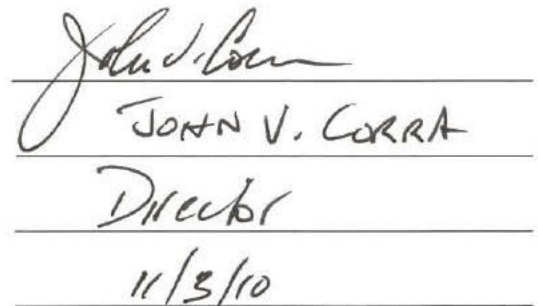 John V. Corra
JOHN V. CORRA
Director
11/3/10